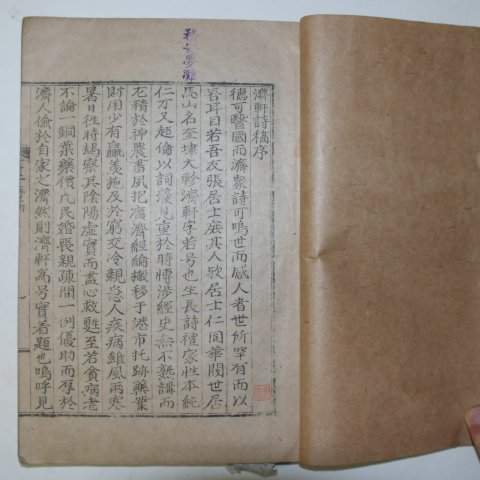 濟軒詩稿序
德可醫國而濟衆詩可鳴世而感人者世所罕有而以
吾耳目若吾友張居士庶其人歟居士仁同華閥世居
馬山名奎 大軫濟軒字若号也生長詩禮家性本純
仁才又超倫以詞藻見重於時 涉經史無不熟講而
尤精於神農書夙抱廣濟經綸搬移于港市托跡藥業
財用少有羸羨施及於窮交冷親急人疾病雖風雨寒
暑日徃時 察其陰陽虛實而盡心救甦至若貧病老
不論一銅葉藥價凢民婚喪親疎間一例優助而厚於
濟人儉於自家之濟然則濟軒爲号實着題也嗚呼見